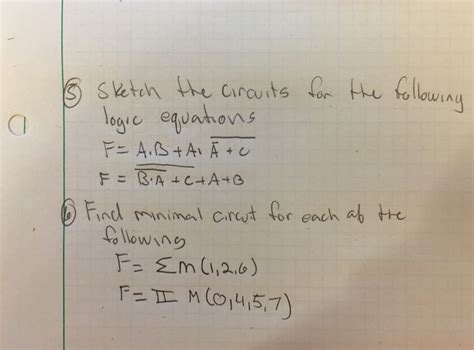 ⑤ Sketch the circuits for the following
logic equations
F = A.B + A. \overline{\overline{A} + C}
F = \overline{\overline{B.A} + C + A + B}
⑥ Find minimal circut for each of the
following
F = Σm(1,2,6)
F = II M(0,4,5,7)